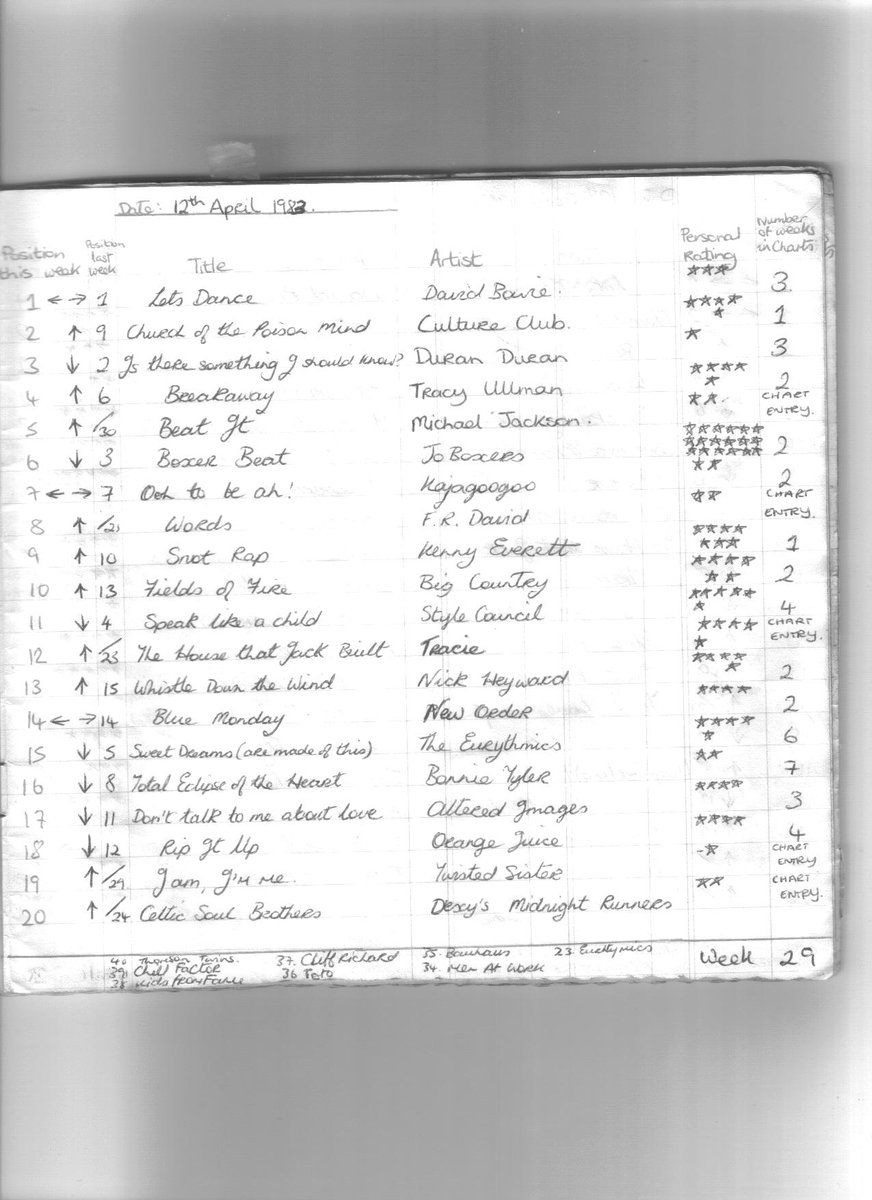 Date: 12th April 1983.
Position this week Position last week Title Artist Personal Rating Number of weeks in Charts
1 ↔ 1 Lets Dance David Bowie. 3
2 ↑ 9 Church of the Poison Mind Culture Club. 1
3 ↓ 2 Is there something I should know? Duran Duran 3
4 ↑ 6 Breakaway Tracy Ullman 2
5 ↑ /30 Beat It Michael Jackson. CHART ENTRY.
6 ↓ 3 Boxer Beat Jo Boxers 2
7 ↔ 7 Ooh to be ah! Kajagoogoo 2
8 ↑ /21 Words F.R. David CHART ENTRY.
9 ↑ 10 Snot Rap Kenny Everett 1
10 ↑ 13 Fields of Fire Big Country 2
11 ↓ 4 Speak like a child Style Council 4
12 ↑ /23 The House that Jack Built Tracie CHART ENTRY.
13 ↑ 15 Whistle Down the Wind Nick Heyward 2
14 ↔ 14 Blue Monday New Order 2
15 ↓ 5 Sweet Dreams (are made of this) The Eurythmics 6
16 ↓ 8 Total Eclipse of the Heart Bonnie Tyler 7
17 ↓ 11 Don't talk to me about love Altered Images 3
18 ↓ 12 Rip It Up Orange Juice 4
19 ↑ /29 I am, I'm me. Twisted Sister CHART ENTRY
20 ↑ /24 Celtic Soul Brothers Dexy's Midnight Runners CHART ENTRY.
40 Thomson Twins 37. Cliff Richard 35. Bauhaus 23. Eurythmics Week 29
39 Chill Factor 36 Toto 34. Men At Work
38 Kids From Fame